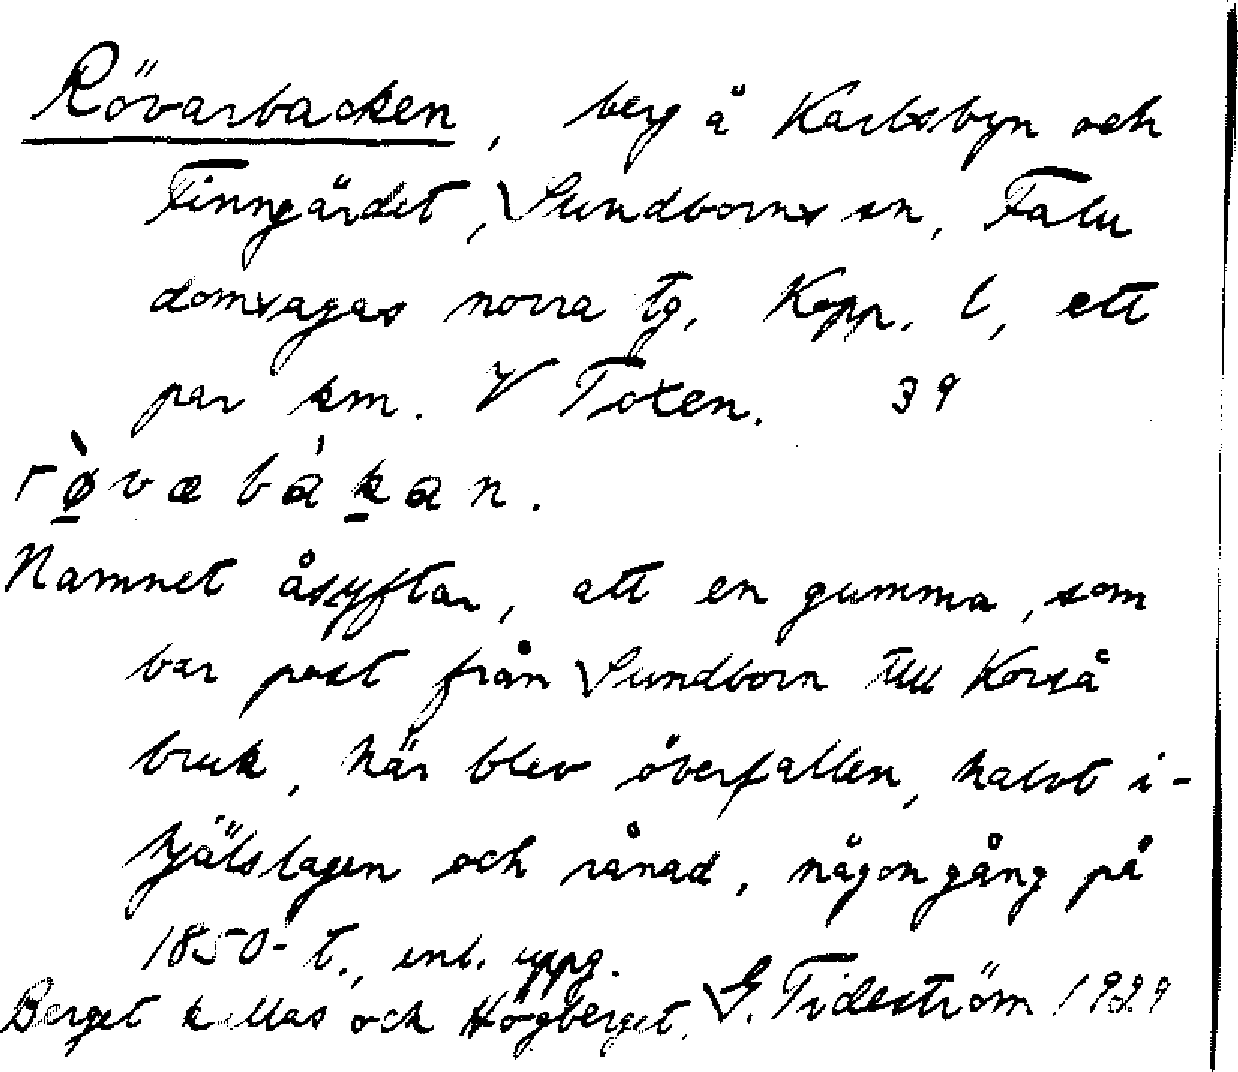 Rövarbacken, berg å Karlsbyn och
Finngärdet, Sundborns sn, Falu
domsagas norra tg, Kopp. l, ett
par km. V Toxen. 39
rø̀væbákan.
Namnet åsyftar, att en gumma, som
bar post från Sundborn till Korså
bruk, här blev överfallen, halvt i-
hjälslagen och rånad, någon gång på
1850-t., enl. uppg.
Berget kallas och Högberget. G. Tideström 1929